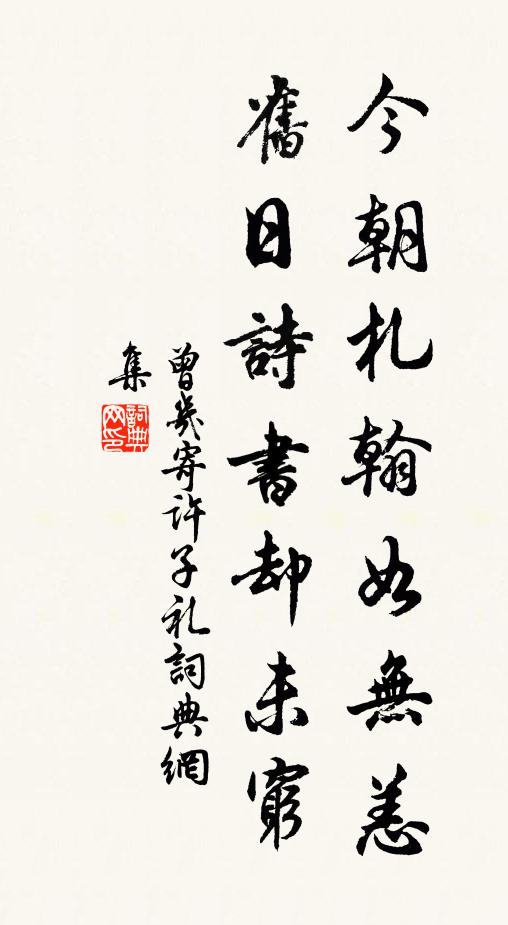 今朝札翰如無恙
舊日詩書却未窮
曾幾寄許子礼詞典網
集
詞典网印